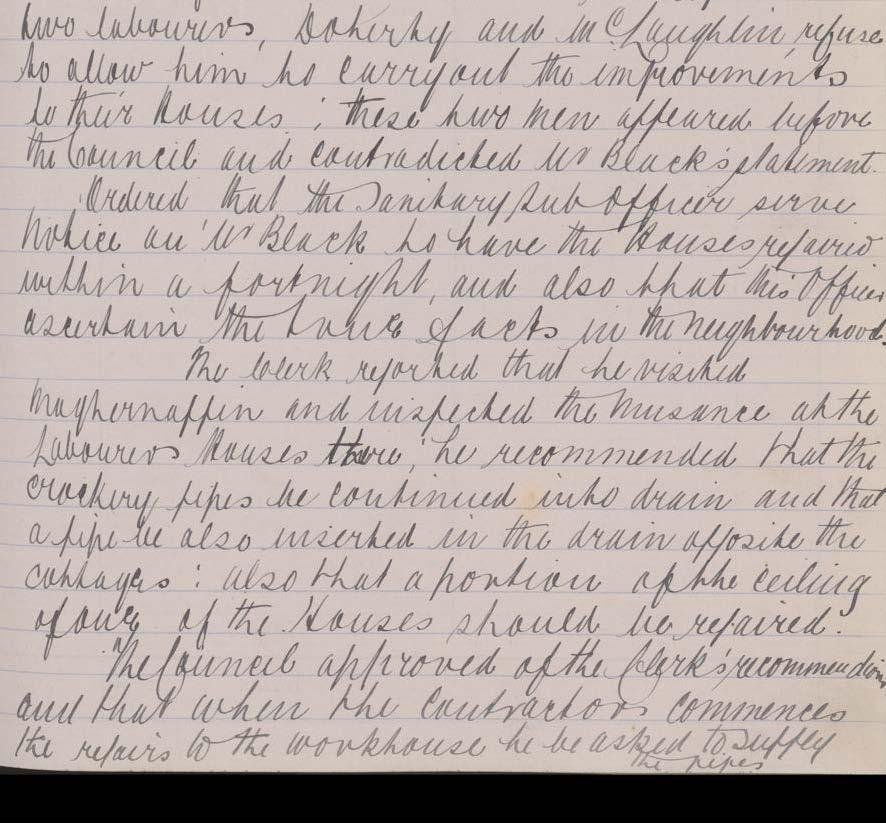 two labourers, Doherty and McLaughlin, refuse
to allow him to carry out the improvements
to their Houses ; these two men appeared before
the Council and contradicted Mr Black's statement.
Ordered that the Sanitary Sub Officer serve
Notice on Mr Black to have the Houses repaired
within a fortnight, and also that this Officer
ascertain the true facts in the neighbourhood.
The Clerk reported that he visited
Maghernappin and inspected the Nuisance at the
Labourers Houses there ; he recommended that the
crockery pipes be continued into drain and that
a pipe be also inserted in the drain opposite the
cottages : also that a portion of the ceiling
of one of the Houses should be repaired.
The Council approved of the Clerk's
and that when the contractor commences
the repairs to the workhouse he be asked to supply
the pipes